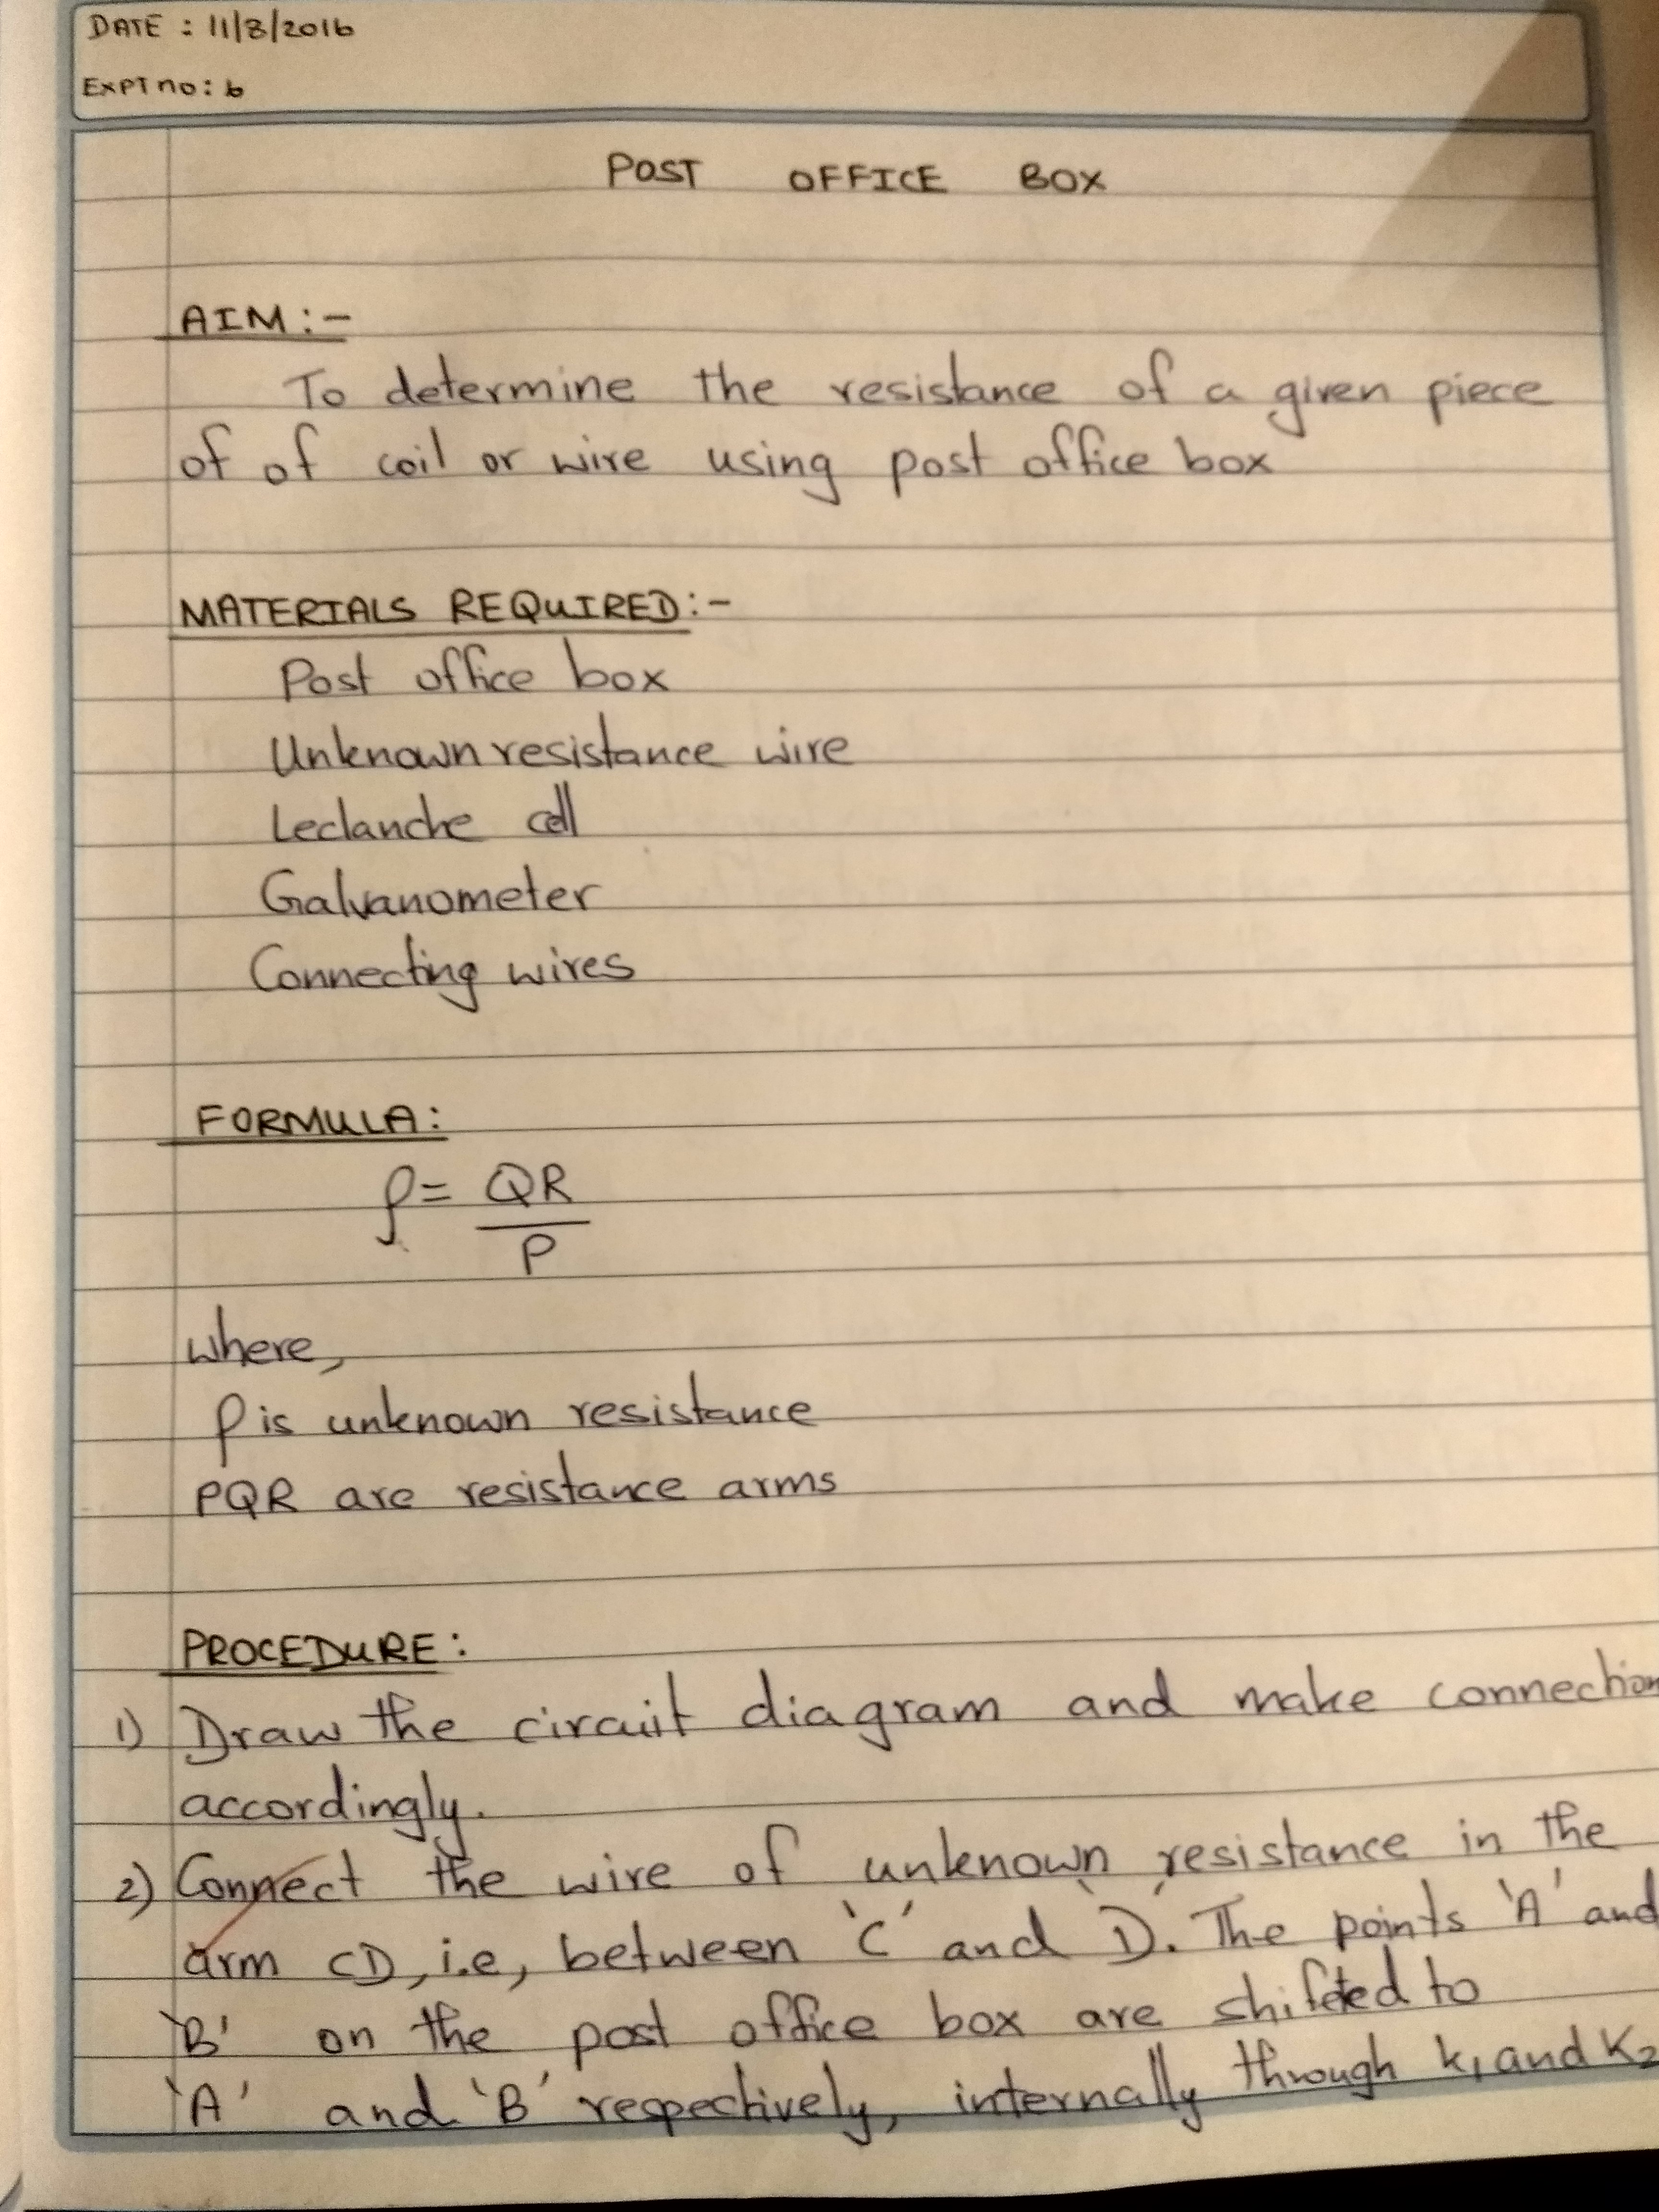 DATE : 11/8/2016
EXPT no: 6
POST OFFICE BOX
AIM:-
To determine the resistance of a given piece
of of coil or wire using post office box
MATERIALS REQUIRED:-
Post office box
Unknown resistance wire
Leclanche cell
Galvanometer
Connecting wires
FORMULA:
ρ = QR
P
where,
ρ is unknown resistance
PQR are resistance arms
PROCEDURE:
1) Draw the circuit diagram and make connection
accordingly.
2) Connect the wire of unknown resistance in the
arm CD, i.e, between 'C' and 'D'. The points 'A' and
'B' on the post office box are shifted to
'A' and 'B' respectively, internally through k1 and K2